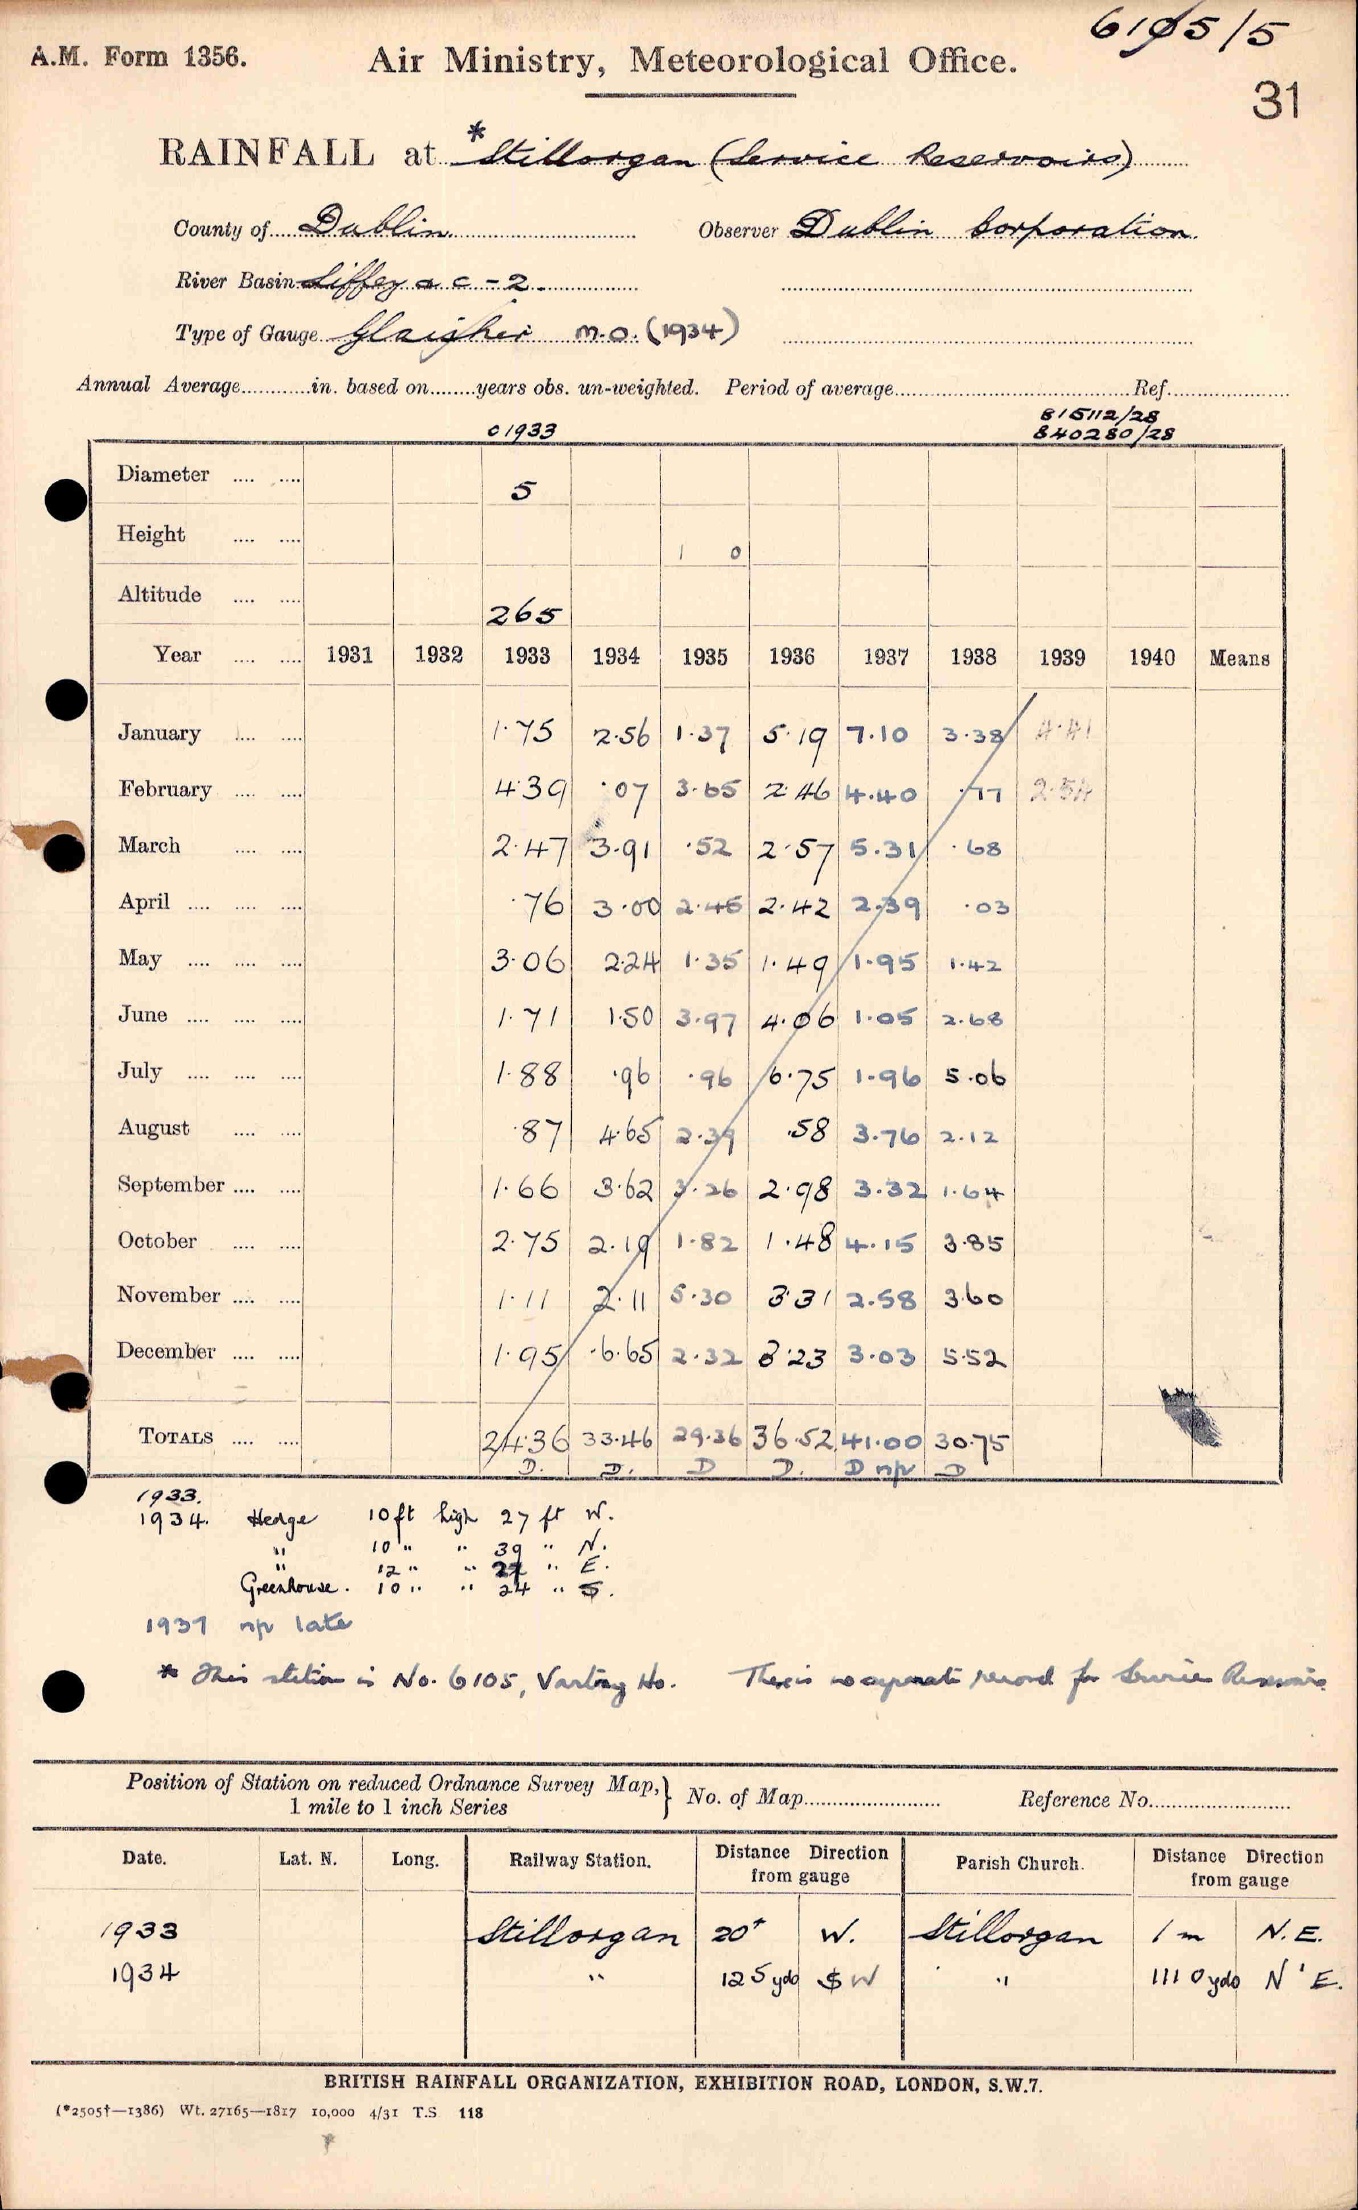 6105/5
A.M. Form 1356. Air Ministry, Meteorological Office.
31
RAINFALL at * Stillorgan (Service Reservoirs)
County of Dublin. Observer Dublin Corporation.
River Basin Liffey a c - 2.
Type of Gauge Glaisher M.O. (1934)
Annual Average in. based on years obs. un-weighted. Period of average Ref.
c 1933 815112/28
840280/28
Diameter 5
Height 1 0
Altitude 265
Year 1931 1932 1933 1934 1935 1936 1937 1938 1939 1940 Means
January 1.75 2.56 1.37 5.19 7.10 3.38 4.41
February 4.39 .07 3.65 2.46 4.40 .77 2.54
March 2.47 3.91 .52 2.57 5.31 .68
April .76 3.00 2.45 2.42 2.39 .03
May 3.06 2.24 1.35 1.49 1.95 1.42
June 1.71 1.50 3.97 4.06 1.05 2.68
July 1.88 .96 .96 6.75 1.96 5.06
August .87 4.65 2.39 .58 3.76 2.12
September 1.66 3.62 3.26 2.98 3.32 1.64
October 2.75 2.19 1.82 1.48 4.15 3.85
November 1.11 2.11 5.30 3.31 2.58 3.60
December 1.95 6.65 2.32 3.23 3.03 5.52
TOTALS 24.36 33.46 29.36 36.52 41.00 30.75
D. D. D D. D np D
1933.
1934. Hedge 10 ft high 27 ft W.
" 10 " " 39 " N.
" 12 " " 27 " E.
Greenhouse. 10 " " 24 " S.
1937 np late
* This station is No. 6105, Vartry Ho. There is no separate record for Service Reservoirs
Position of Station on reduced Ordnance Survey Map, } No. of Map Reference No.
1 mile to 1 inch Series
Date. Lat. N. Long. Railway Station. Distance Direction from gauge Parish Church. Distance Direction from gauge
1933 Stillorgan 20+ W. Stillorgan 1 m N.E.
1934 " 125 yds SW " 1110 yds N'E.
BRITISH RAINFALL ORGANIZATION, EXHIBITION ROAD, LONDON, S.W.7.
(*2505†—1386) Wt. 27165—1817 10,000 4/31 T.S 118